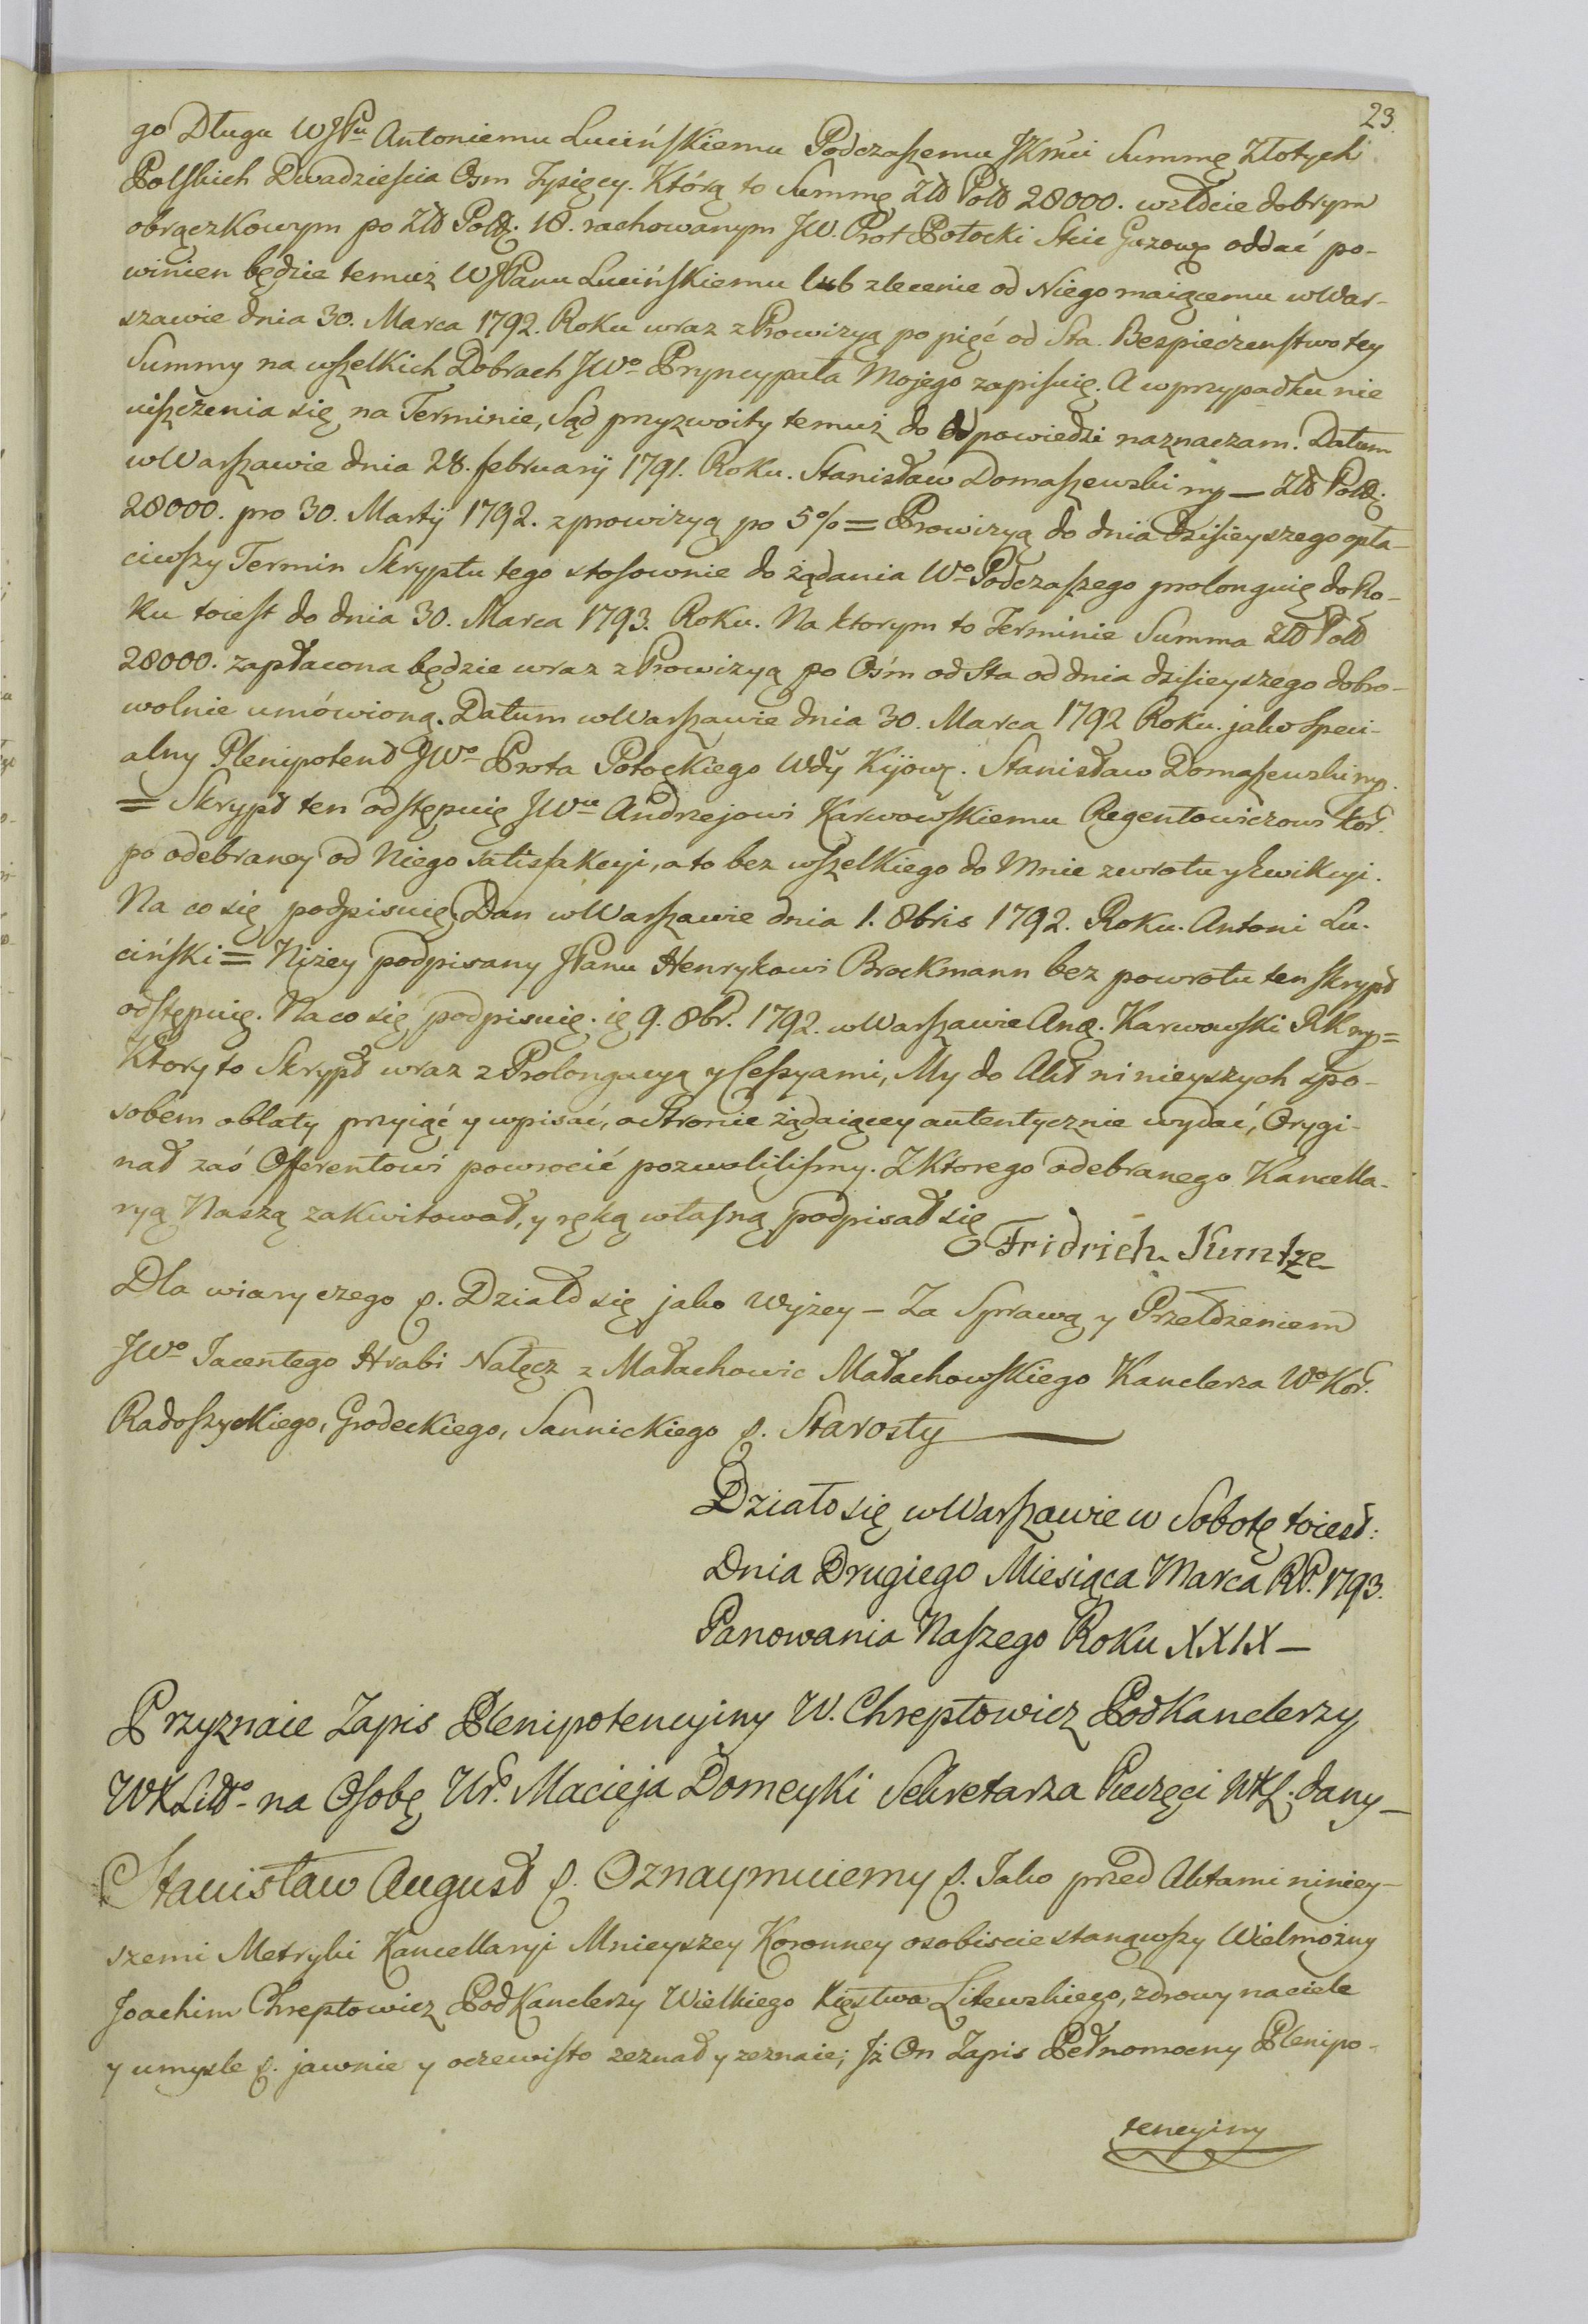 23.
go Długu WJPu Antoniemu Lucińskiemu Podczaszemu JKmci Summę Złotych
Polskich Dwadziescia Osm Tysięcy. Którą to Summę Zło Pols 28000. w złocie dobrym
obrączkowym po Zło Polg. 18. rachowanym JW. Prot Potocki Stte Guzow. oddać po-
winien będzie temuż WJPanu Lucińskiemu lub zlecenie od Niego maiącemu w War-
szawie dnia 30. Marca 1792. Roku wraz z Prowizyą po pięć od Sta. Bespieczenstwo tey
Summy na wszelkich Dobrach JWo Pryncypała Mojego zapisuię. A w przypadku nie
uiszczenia się na Terminie, Sąd przyzwoity temuż do Odpowiedzi naznaczam. Datum
w Warszawie dnia 28. february 1791. Roku. Stanisław Domaszewski mp – Zło Polg.
28000. pro 30. Martij 1792. z prowizyą po 5% = Prowizyą do dnia dzisieyszego opła-
ciwszy Termin Skryptu tego stosownie do żądania Wo Podczaszego prolonguię do Ro-
ku toiest do dnia 30. Marca 1793. Roku. Na ktorym to Terminie Summa Zło Pols
28000. zapłacona będzie wraz z Prowizyą po Ośm od Sta od dnia dzisieyszego dobro-
wolnie umówioną. Datum w Warszawie dnia 30. Marca 1792 Roku. jako speci-
alny Plenipotent JWo Prota Potockiego Wdy Kijow. Stanisław Domaszewski mp.
= Skrypt ten odstępuię JWu Andrzejowi Karwowskiemu Regentowiczowi Kor.
po odebraney od Niego satisfakcyi, a to bez wszelkiego do Mnie zwrotu y Ewikcyi.
Na co się podpisuię Dan w Warszawie dnia 1. 8bris 1792. Roku. Antoni Lu-
ciński = Niżey podpisany JPanu Henrykowi Brockmann bez powrotu ten skrypt
odstępuię. Na co się podpisuię. ię 9. 8br. 1792. w Warszawie And. Karwowski RK mp =
Ktory to Skrypt wraz z Prolongacyą y Cessyami, My do Akt ninieyszych spo-
sobem oblaty przyiąć y wpisać, a Stronie żądaiącey autentycznie wydać, Orygi-
nał zaś Offerentowi powrocić pozwolilismy. Z ktorego odebranego Kancella-
ryą Naszą zakwitował, y ręką własną podpisał się
Fridrich Kuntze
Dla wiary czego &. Działo się jako Wyżey – Za Sprawą y Przełożeniem
JWo Jacentego Hrabi Nałęcz z Małachowic Małachowskiego Kanclerza Wo Kor.
Radoszyckiego, Grodeckiego, Sannickiego &. Starosty
Działo się w Warszawie w Sobotę toiest:
Dnia Drugiego Miesiąca Marca RP. 1793.
Panowania Naszego Roku XXIX –
Przyznaie Zapis Plenipotencyiny W. Chreptowicz PodKanclerzy
WXLitto – na Osobę Ur. Macieja Domeyki Sekretarza Pieczęci WXL. dany –
Stanisław August &. Oznaymuiemy &. Jako przed Aktami niniey-
szemi Metryki Kancellaryi Mnieyszey Koronney osobiscie stanąwszy Wielmożny
Joachim Chreptowicz PodKanclerzy Wielkiego Xięstwa Litewskiego, zdrowy na ciele
y umysle &. jawnie y oczewisto zeznał y zeznaie; Jż On Zapis Pełnomocny Plenipo-
tencyiny